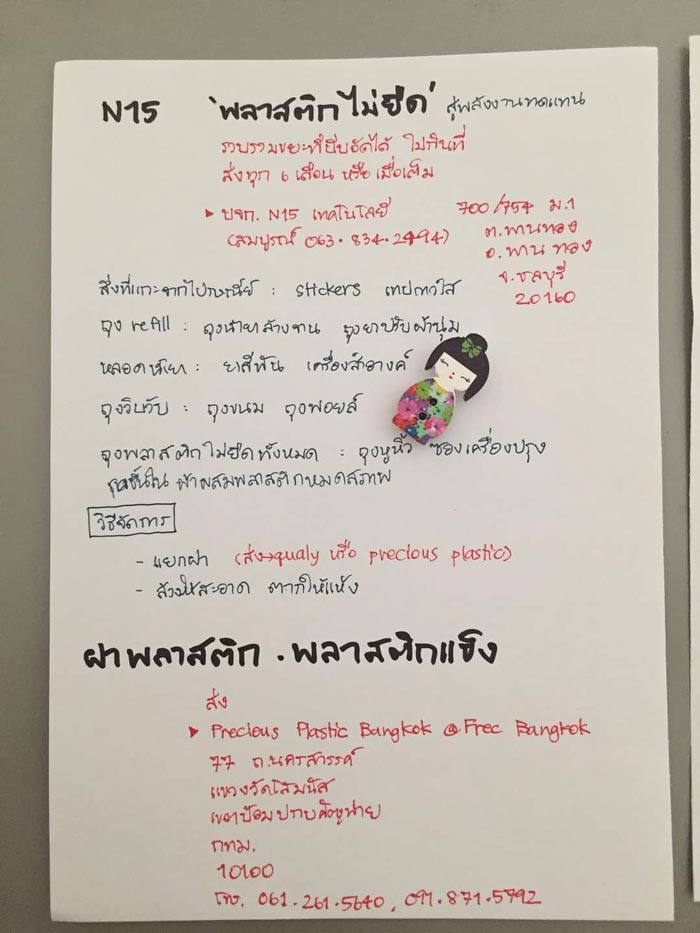 N15 'พลาสติกไม่ยืด' สู่พลังงานทดแทน
รวบรวมขยะที่บีบอัดได้ ไม่กินที่
ส่งทุก 6 เดือน หรือ เมื่อเต็ม
▸ บจก. N15 เทคโนโลยี
(สมบูรณ์ 063.834.2494)
700/754 ม.1
ต.พานทอง
อ.พานทอง
จ.ชลบุรี
20160
สิ่งที่แกะจากไปรษณีย์ : stickers เทปกาวใส
ถุง refill : ถุงน้ำยาล้างจาน ถุงยาปรับผ้านุ่ม
หลอดบีบยา : ยาสีฟัน เครื่องสำอางค์
ถุงวิบวับ : ถุงขนม ถุงฟอยล์
ถุงพลาสติกไม่ยืดทั้งหมด : ถุงหูหิ้ว ซองเครื่องปรุง
ชุดชั้นใน ผ้าผสมพลาสติกหมดสภาพ
วิธีจัดการ
- แยกฝา (ส่ง→qualy หรือ precious plastic)
- ล้างให้สะอาด ตากให้แห้ง
ฝาพลาสติก . พลาสติกแข็ง
ส่ง
▸ Precious Plastic Bangkok @Frec Bangkok
77 ถ.นครสวรรค์
แขวงวัดโสมนัส
เขตป้อมปราบศัตรูพ่าย
กทม.
10100
โทร. 061.261.5640, 097.871.5792